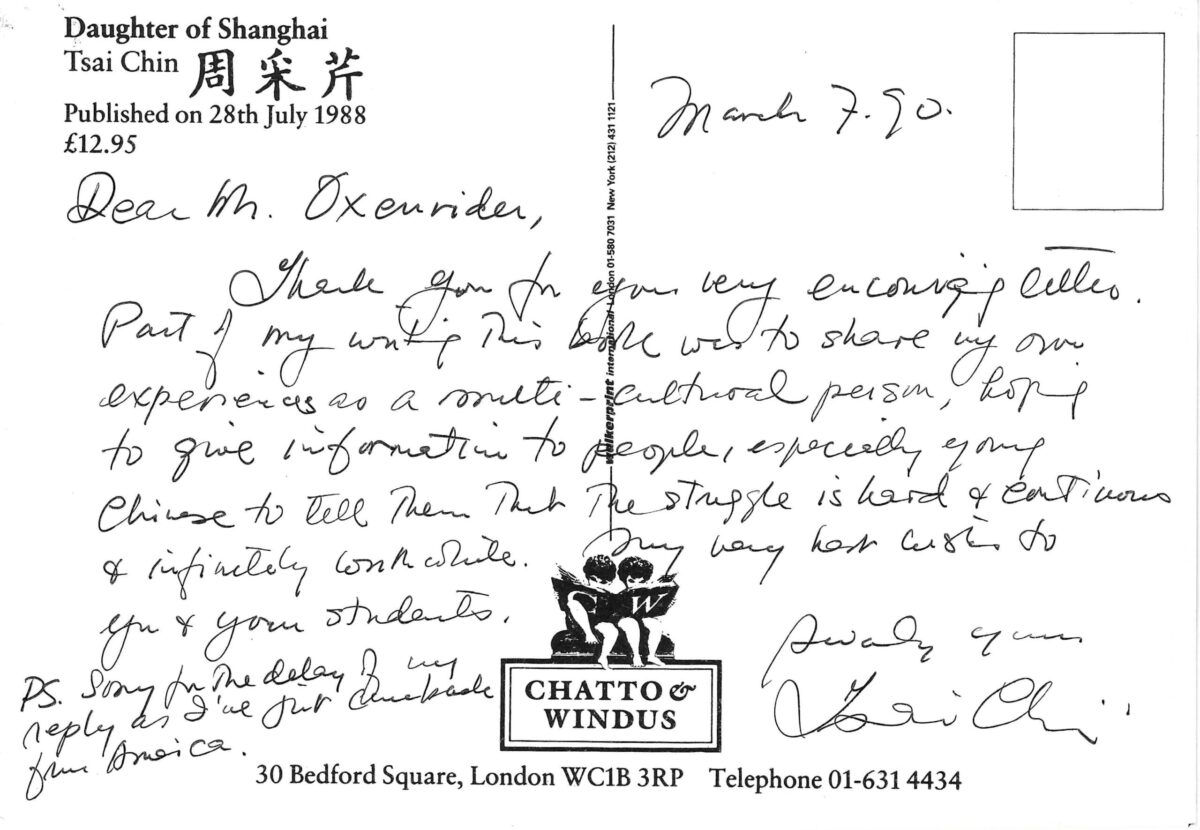 Daughter of Shanghai
Tsai Chin 周采芹
Published on 28th July 1988
£12.95
March 7. 90.
Dear Mr. Oxenrider,
Thank you for your very encouraging letter.
Part of my writing this book was to share my own
experiences as a multi-cultural person, hoping
to give information to people, especially young
Chinese to tell them that the struggle is hard & continuous
& infinitely worthwhile. My very best wishes to
you & your students.
Sincerely yours
Tsai Chin
PS. Sorry for the delay of my
reply as I've just come back
from America.
walkerprint international London 01-580 7031 New York (212) 431 1121
C W
CHATTO &
WINDUS
30 Bedford Square, London WC1B 3RP Telephone 01-631 4434